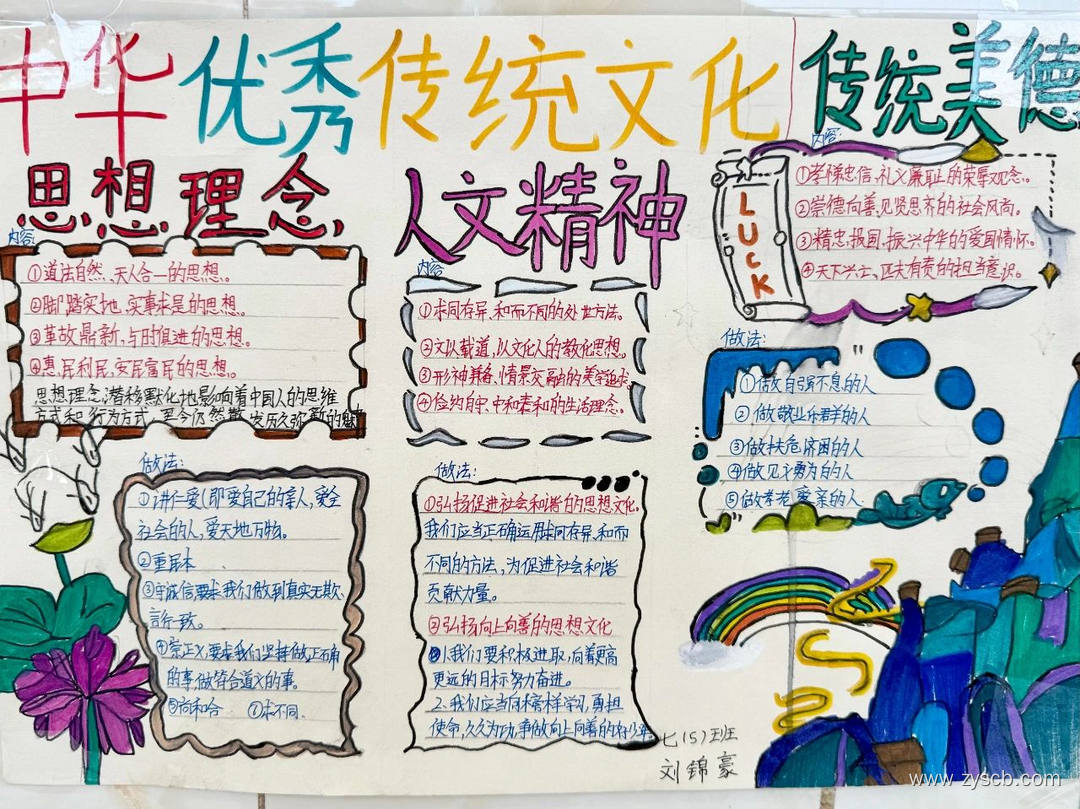 中华优秀传统文化
传统美德
思想理念
内容:
①道法自然、天人合一的思想。
②脚踏实地、实事求是的思想。
③革故鼎新,与时俱进的思想。
④惠民利民、安民富民的思想。
思想理念潜移默化地影响着中国人的思维
方式和行为方式,至今仍然散发历久弥新的魅
做法:
①讲仁爱(即要自己的亲人,爱全
社会的人,爱天地万物。
②重民本
③守诚信要求我们做到真实无欺、
言行一致。
④崇正义,要求我们坚持做正确
的事,做符合道义的事。
⑤尚和合 ⑥求不同.
人文精神
内容:
①求同存异、和而不同的处世方法。
②文以载道,以文化人的教化思想。
③形神兼备、情景交融的美学追求
④俭约自守、中和泰和的生活理念。
做法:
①弘扬促进社会和谐的思想文化.
我们应当正确运用求同存异、和而
不同的方法,为促进社会和谐
贡献力量。
②弘扬向上向善的思想文化
1、我们要积极进取,向着更高
更远的目标努力奋进。
2、我们应当向榜样学习,勇担
使命,久久为功,争做向上向善的好少年
内容:
LUCK
①孝悌忠信、礼义廉耻的荣辱观念。
②崇德向善、见贤思齐的社会风尚。
③精忠报国、振兴中华的爱国情怀。
④天下兴亡、匹夫有责的担当意识。
做法:
①做自强不息的人
②做敬业乐群的人
③做扶危济困的人
④做见义勇为的人
⑤做孝老爱亲的人
七(5)班
刘锦豪
www.zyscb.com